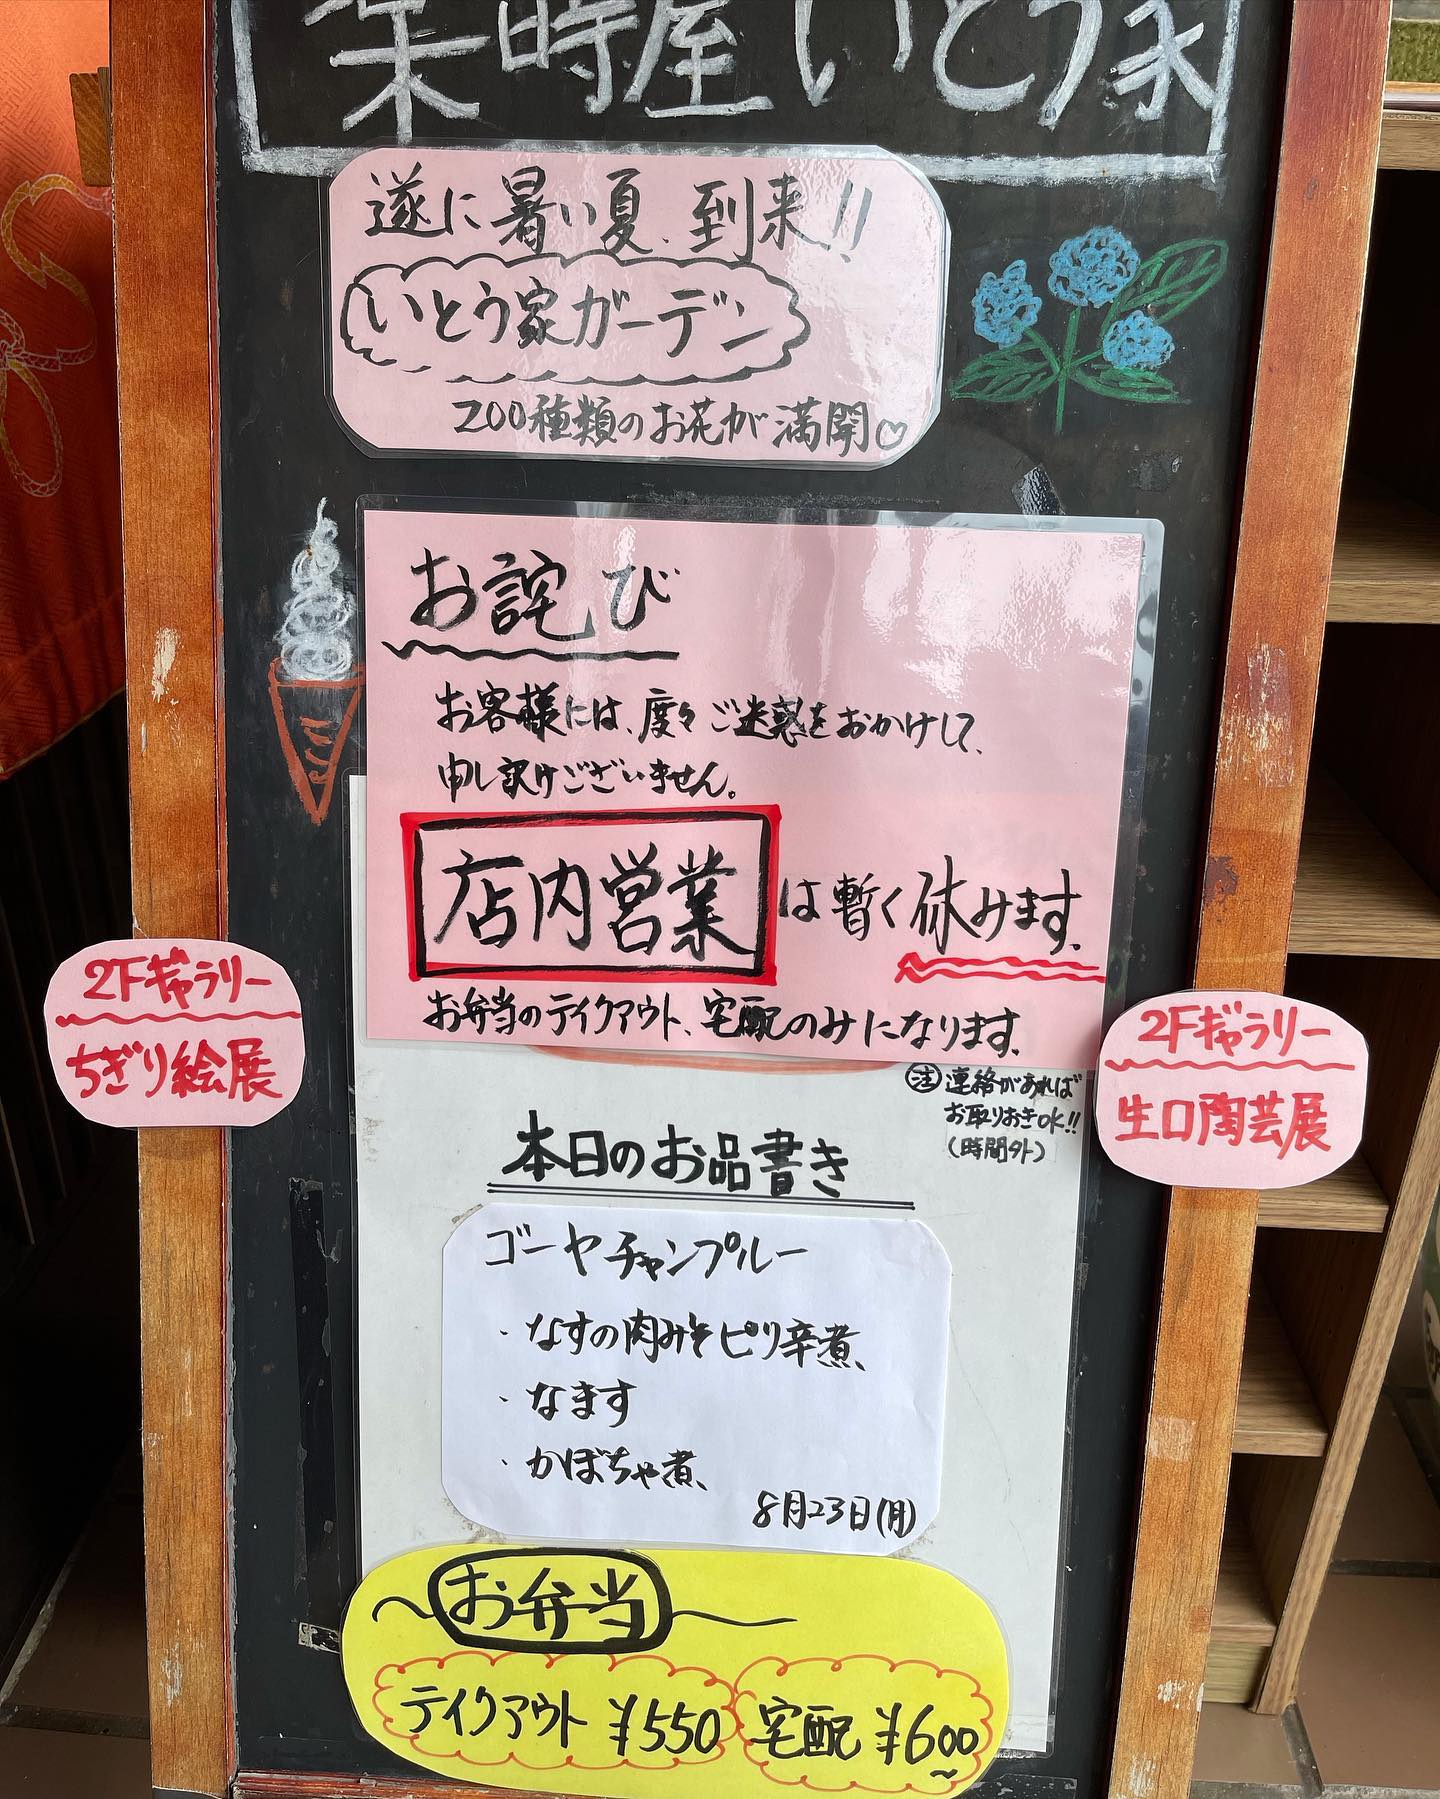 時屋 いとう家
遂に暑い夏、到来!!
いとう家ガーデン
200種類のお花が満開♡
お詫び
お客様には、度々ご迷惑をおかけして、
申し訳けございません。
店内営業は暫く休みます。
お弁当のテイクアウト、宅配のみになります。
注 連絡があれば
お取りおきOK!!
(時間外)
2Fギャラリー
ちぎり絵展
2Fギャラリー
生口陶芸展
本日のお品書き
ゴーヤチャンプルー
・なすの肉みそピリ辛煮
・なます
・かぼちゃ煮
8月23日(月)
お弁当
テイクアウト ¥550
宅配 ¥600